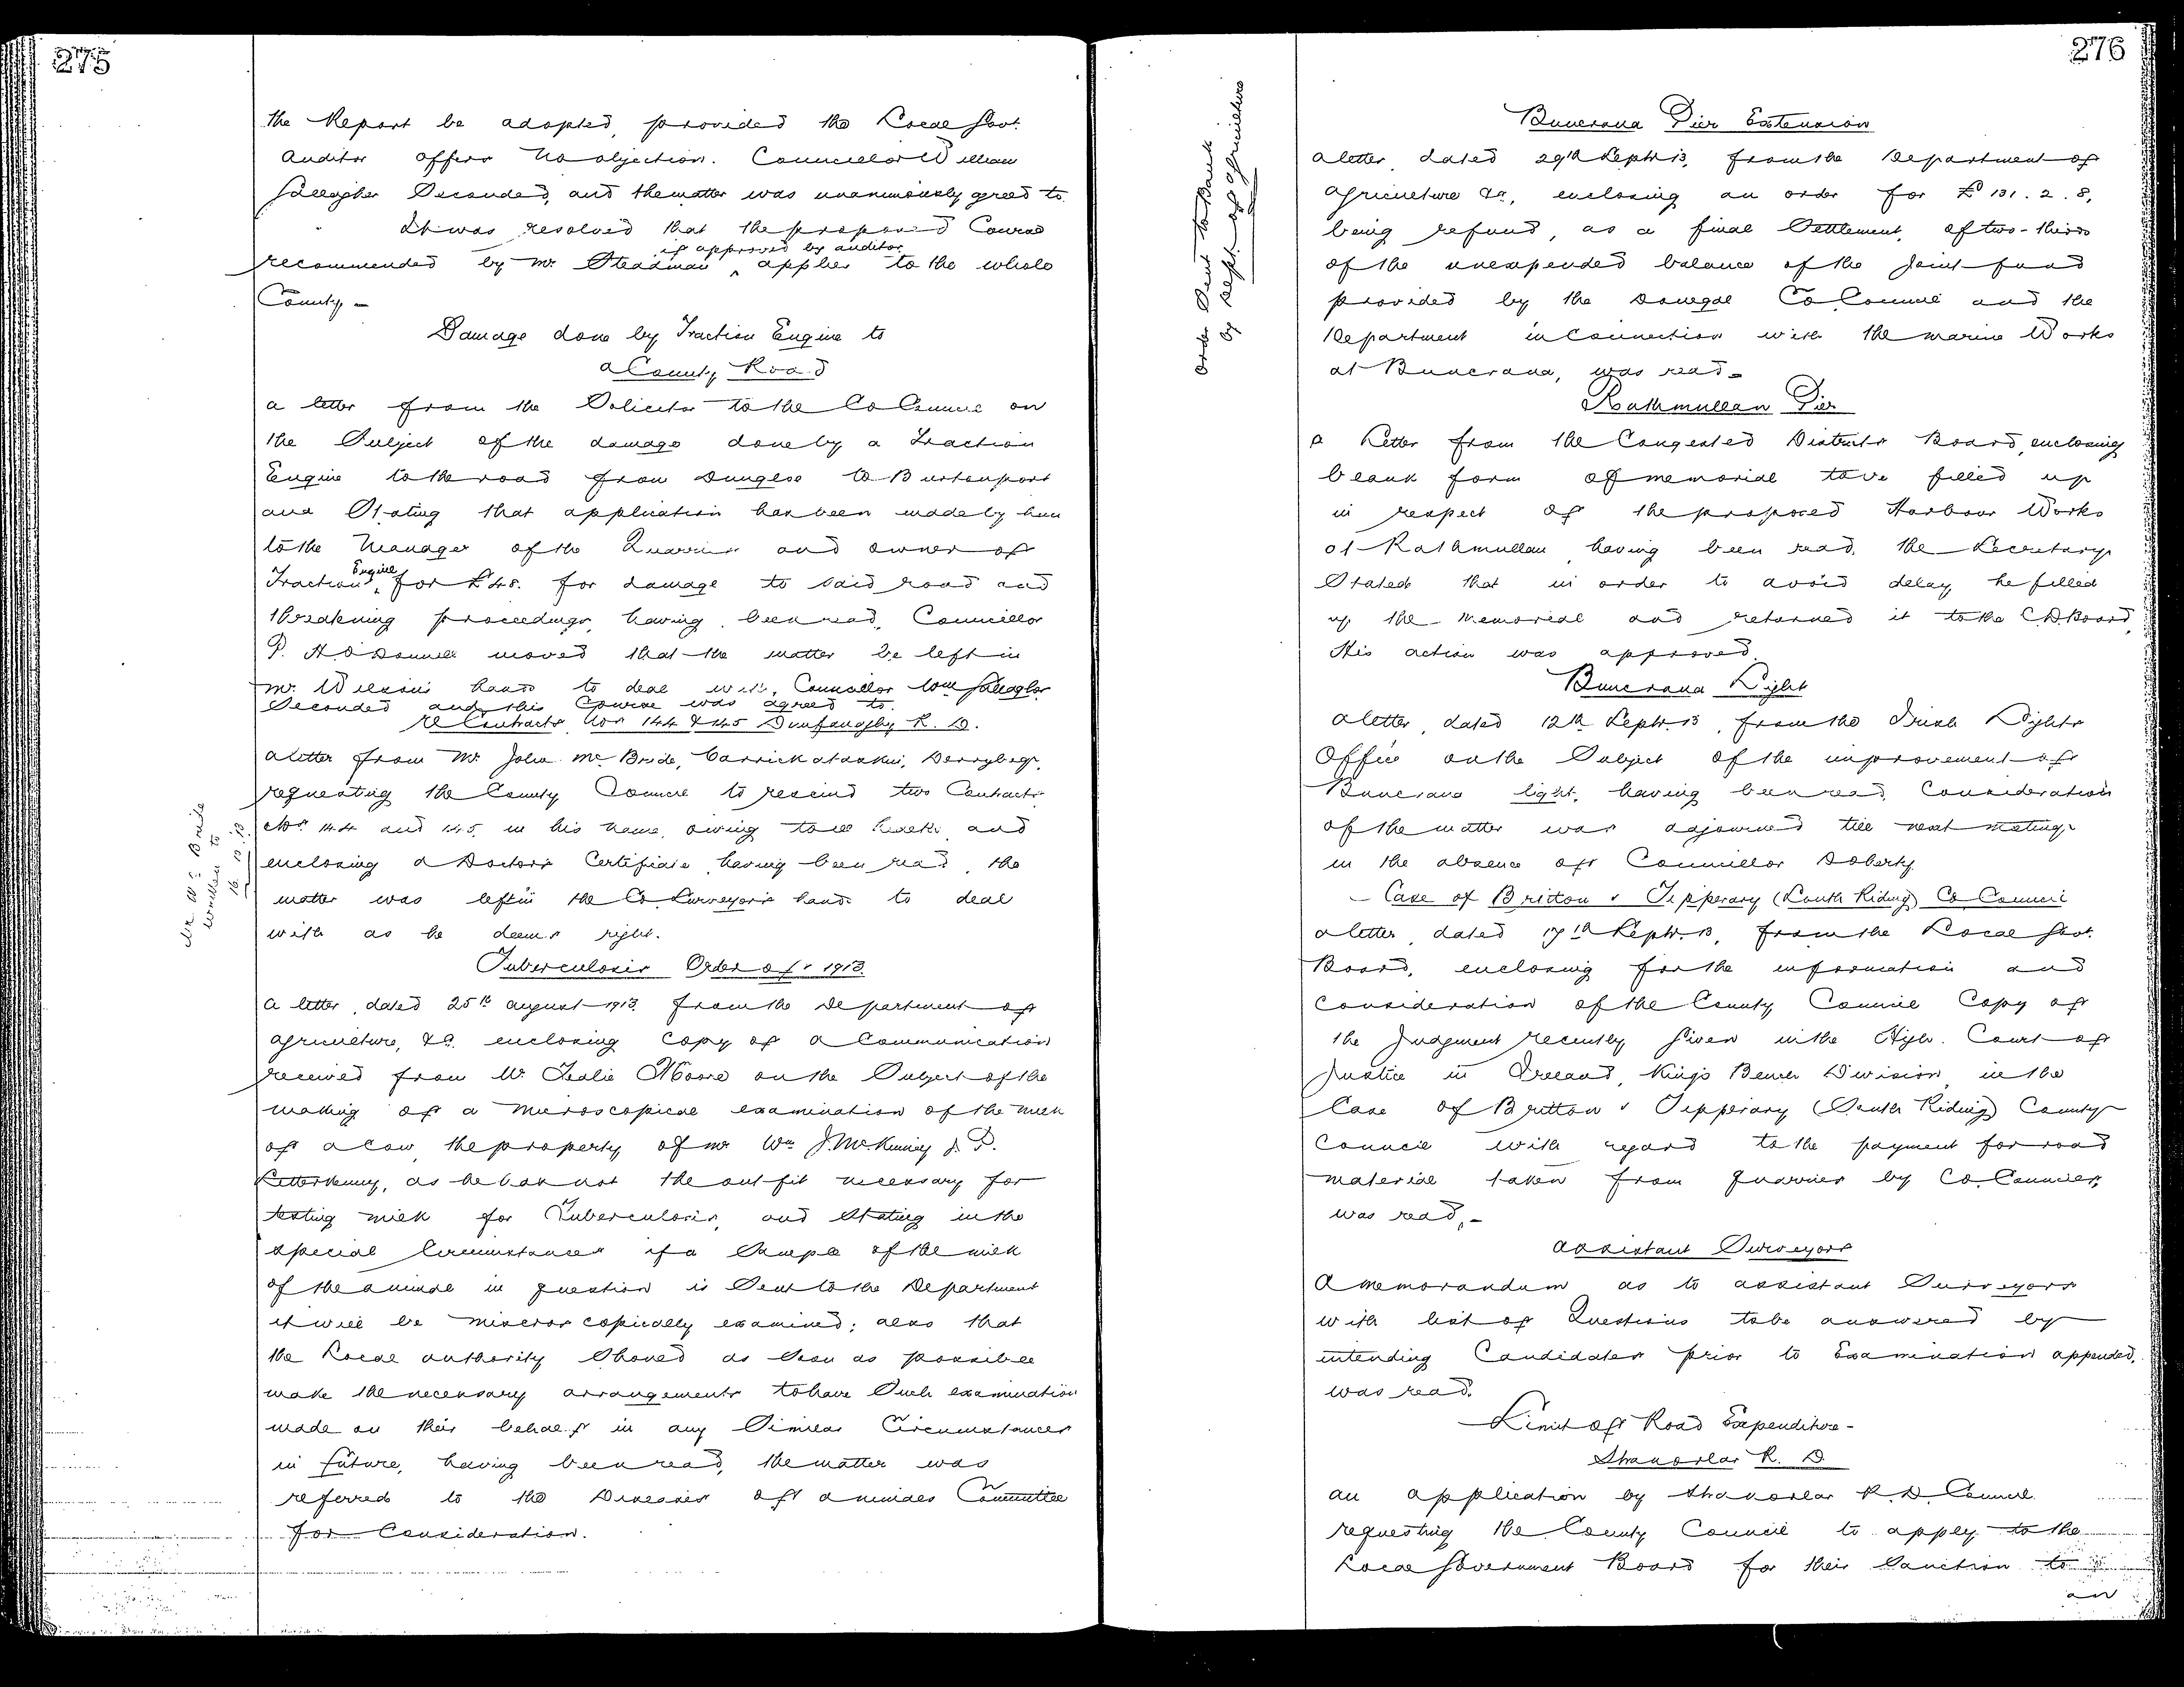 275
the Report be adopted, provided the Local Govt.
Auditor offers no objection. Councillor William
Gallagher Seconded, and the matter was unanimously agreed to.
It was resolved that the proposed Course
if approved by auditor
recommended by Mr. Steadman applies to the whole
County -
Damage done by Traction Engine to
a County Road
a letter from the Solicitor to the Co Council on
the Subject of the damage done by a Traction
Engine to the road from Dungloe to Burtonport
and Stating that application has been made by him
to the Manager of the Quarries and owner of
Traction Engine for £48. for damage to said road and
threatening proceedings, having been read, Councillor
P. H. O'Donnell moved that the matter be left in
Mr. Wilson's hands to deal with, Councillor Wm Gallagher
Seconded and this Course was agreed to.
re Contracts Nos 144 & 145 Dunfanaghy R. D.
a letter from Mr. John McBride, Derrybeg,
requesting the County Council to rescind two Contracts
Nos. 144 and 145, in his name, owing to ill health, and
enclosing a Doctor's Certificate, having been read, the
matter was left in the Co. Surveyor's hands to deal
with as he deems right.
Mr McBride
written to
16.10.13
Tuberculosis Order of 1913.
a letter, dated 25th august 1913, from the Department of
agriculture, &c. enclosing Copy of a Communication
received from Mr. Leslie Moore on the Subject of the
making of a Microscopical examination of the milk
of a Cow, the property of Mr Wm J. McKinney J. P.
Letterkenny, as he has not the outfit necessary for
testing milk for Tuberculosis, and Stating in the
special Circumstances if a Sample of the milk
of the animal in question is Sent to the Department
it will be microscopically examined; also that
the Local authority Should as Soon as possible
make the necessary arrangements to have Such examination
made on their behalf in any Similar Circumstances
in future, having been read, the matter was
referred to the Diseases of animals Committee
for Consideration.
276
Buncrana Pier Extension
Order Sent to Bank
by Dept. of Agriculture
a letter, dated 29th Septr. 13, from the Department of
agriculture &c., enclosing an order for £131. 2. 8,
being refund, as a final Settlement, of two-thirds
of the unexpended balance of the Joint fund
provided by the Donegal Co Council and the
Department in Connection with the marine Works
at Buncrana, was read -
Rathmullan Pier
a Letter from the Congested Districts Board, enclosing
blank form of memorial to be filled up
in respect of the proposed Harbour Works
at Rathmullan having been read, the Secretary
Stated that in order to avoid delay, he filled
up the Memorial and returned it to the C.D. Board,
His action was approved.
Buncrana Light
a letter, dated 12th Septr. 13, from the Irish Lights
Office on the Subject of the improvement of
Buncrana light, having been read, Consideration
of the matter was adjourned till next meeting,
in the absence of Councillor Doherty.
- Case of Britton v Tipperary (South Riding) Co Council
a letter, dated 17th Septr. 13, from the Local Govt.
Board, enclosing for the information and
Consideration of the County Council Copy of
the Judgment recently Given in the High Court of
Justice in Ireland, King's Bench Division, in the
Case of Britton v Tipperary (South Riding) County
Council with regard to the payment for road
material taken from quarries by Co. Councils,
was read, -
Assistant Surveyors
A memorandum as to assistant Surveyors
with list of Questions to be answered by
intending Candidates prior to Examination appended,
was read.
Limit of Road Expenditure -
Stranorlar R. D.
an application by Stranorlar R. D. Council
requesting the County Council to apply to the
Local Government Board for their Sanction to
an